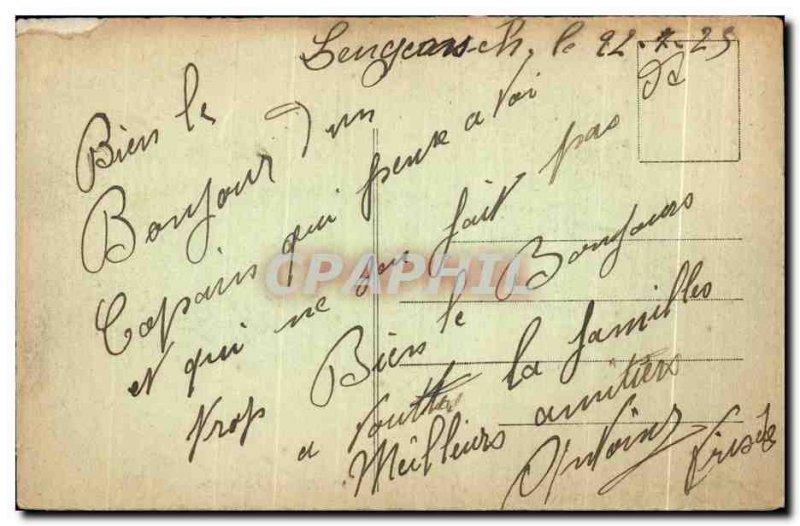 le 22.7.25
Bien le
Bonjour d'un
Copains qui pense a toi
et qui ne s'en fait pas
trop Bien le Bonjours
a toutte la familles
Meilleurs amitiers
Antoine
CPAPHIL